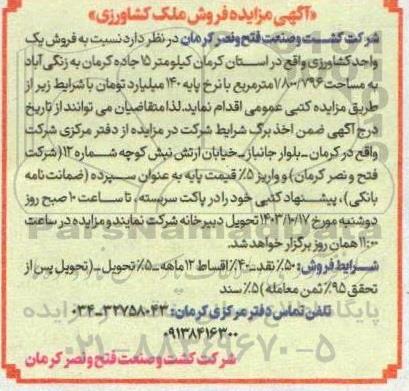 «آگهی مزایده فروش ملک کشاورزی»
شرکت کشت و صنعت فتح و نصر کرمان در نظر دارد نسبت به فروش یک
واحد کشاورزی واقع در استان کرمان کیلومتر ۱۵ جاده کرمان به زنگی آباد
به مساحت ۷۸۰۰/۷۹۶ مترمربع با نرخ پایه ۱۴۰ میلیارد تومان با شرایط زیر از
طریق مزایده کتبی عمومی اقدام نماید. لذا متقاضیان می توانند از تاریخ
درج آگهی ضمن اخذ برگ شرایط شرکت در مزایده از دفتر مرکزی شرکت
واقع در کرمان ـ بلوار جانباز ـ خیابان ارتش نبش کوچه شماره ۱۲ (شرکت
فتح و نصر کرمان) و واریز ۵٪ قیمت پایه به عنوان سپرده (ضمانت نامه
بانکی)، پیشنهاد کتبی خود را در پاکت سربسته، تا ساعت ۱۰ صبح روز
دوشنبه مورخ ۱۴۰۳/۱۰/۱۷ تحویل دبیرخانه شرکت نمایند و مزایده در ساعت
۱۱:۰۰ همان روز برگزار خواهد شد.
شرایط فروش: ۵۰٪ نقد ـ ۴۰٪ اقساط ۱۲ ماهه ـ ۵٪ تحویل ـ (تحویل پس از
تحقق ۹۵٪ ثمن معامله) ۵٪ سند
تلفن تماس دفتر مرکزی کرمان: ۳۲۷۵۸۰۴۳-۰۳۴
۰۹۱۳۸۴۱۶۳۰۰
شرکت کشت و صنعت فتح و نصر کرمان
ParsNamadData
پایگاه اطلاع رسانی مناقصه و مزایده
۰۲۱-۸۸۳۴۹۶۷۰-۵